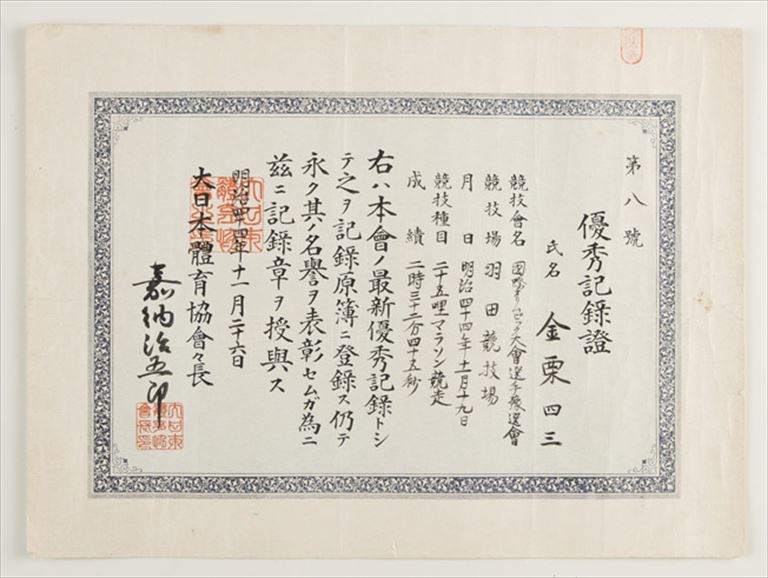 第八號
優秀記録證
氏名 金栗四三
競技會名 國際オリムピック大會選手豫選會
競技場 羽田競技場
月日 明治四十四年十一月十九日
競技種目 二十五哩マラソン競走
成績 二時三十二分四十五秒
右ハ本會ノ最新優秀記録トシ
テ之ヲ記録原簿ニ登録ス仍テ
永ク其ノ名譽ヲ表彰セムガ為ニ
茲ニ記録章ヲ授與ス
明治四十四年十一月二十六日
大日本體育協會々長
嘉納治五郎